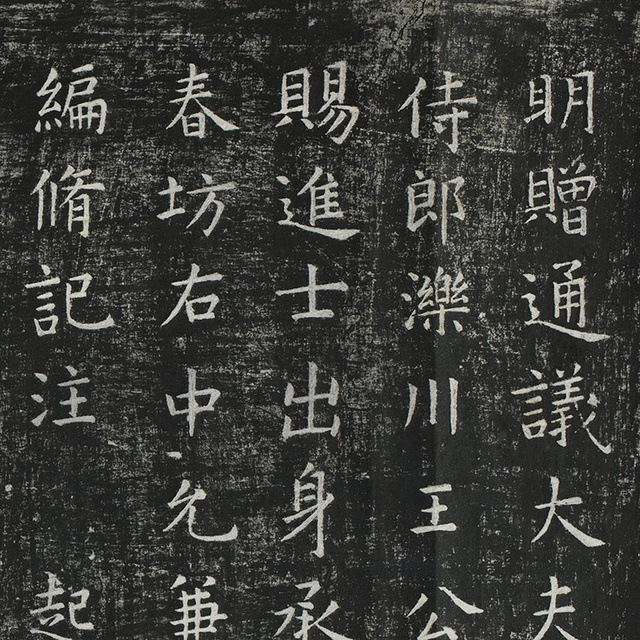 明贈通議大夫
侍郎濼川王公
賜進士出身承
春坊右中允兼
編脩記注起